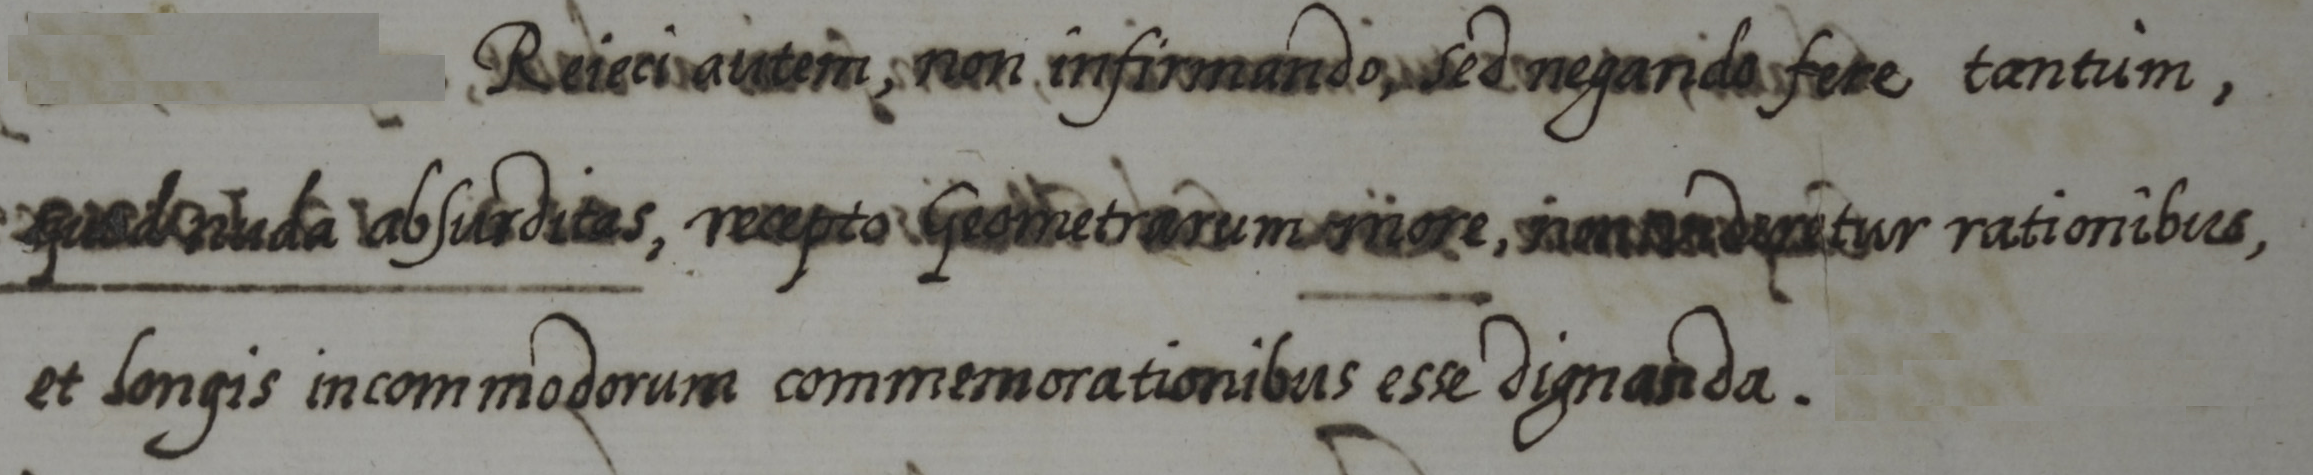 Reieci autem, non infirmando, sed negando fere tantùm,
quod nuda absurditas, recepto Geometrarum more, non videretur rationibus,
et longis incommodorum commemorationibus esse dignanda.